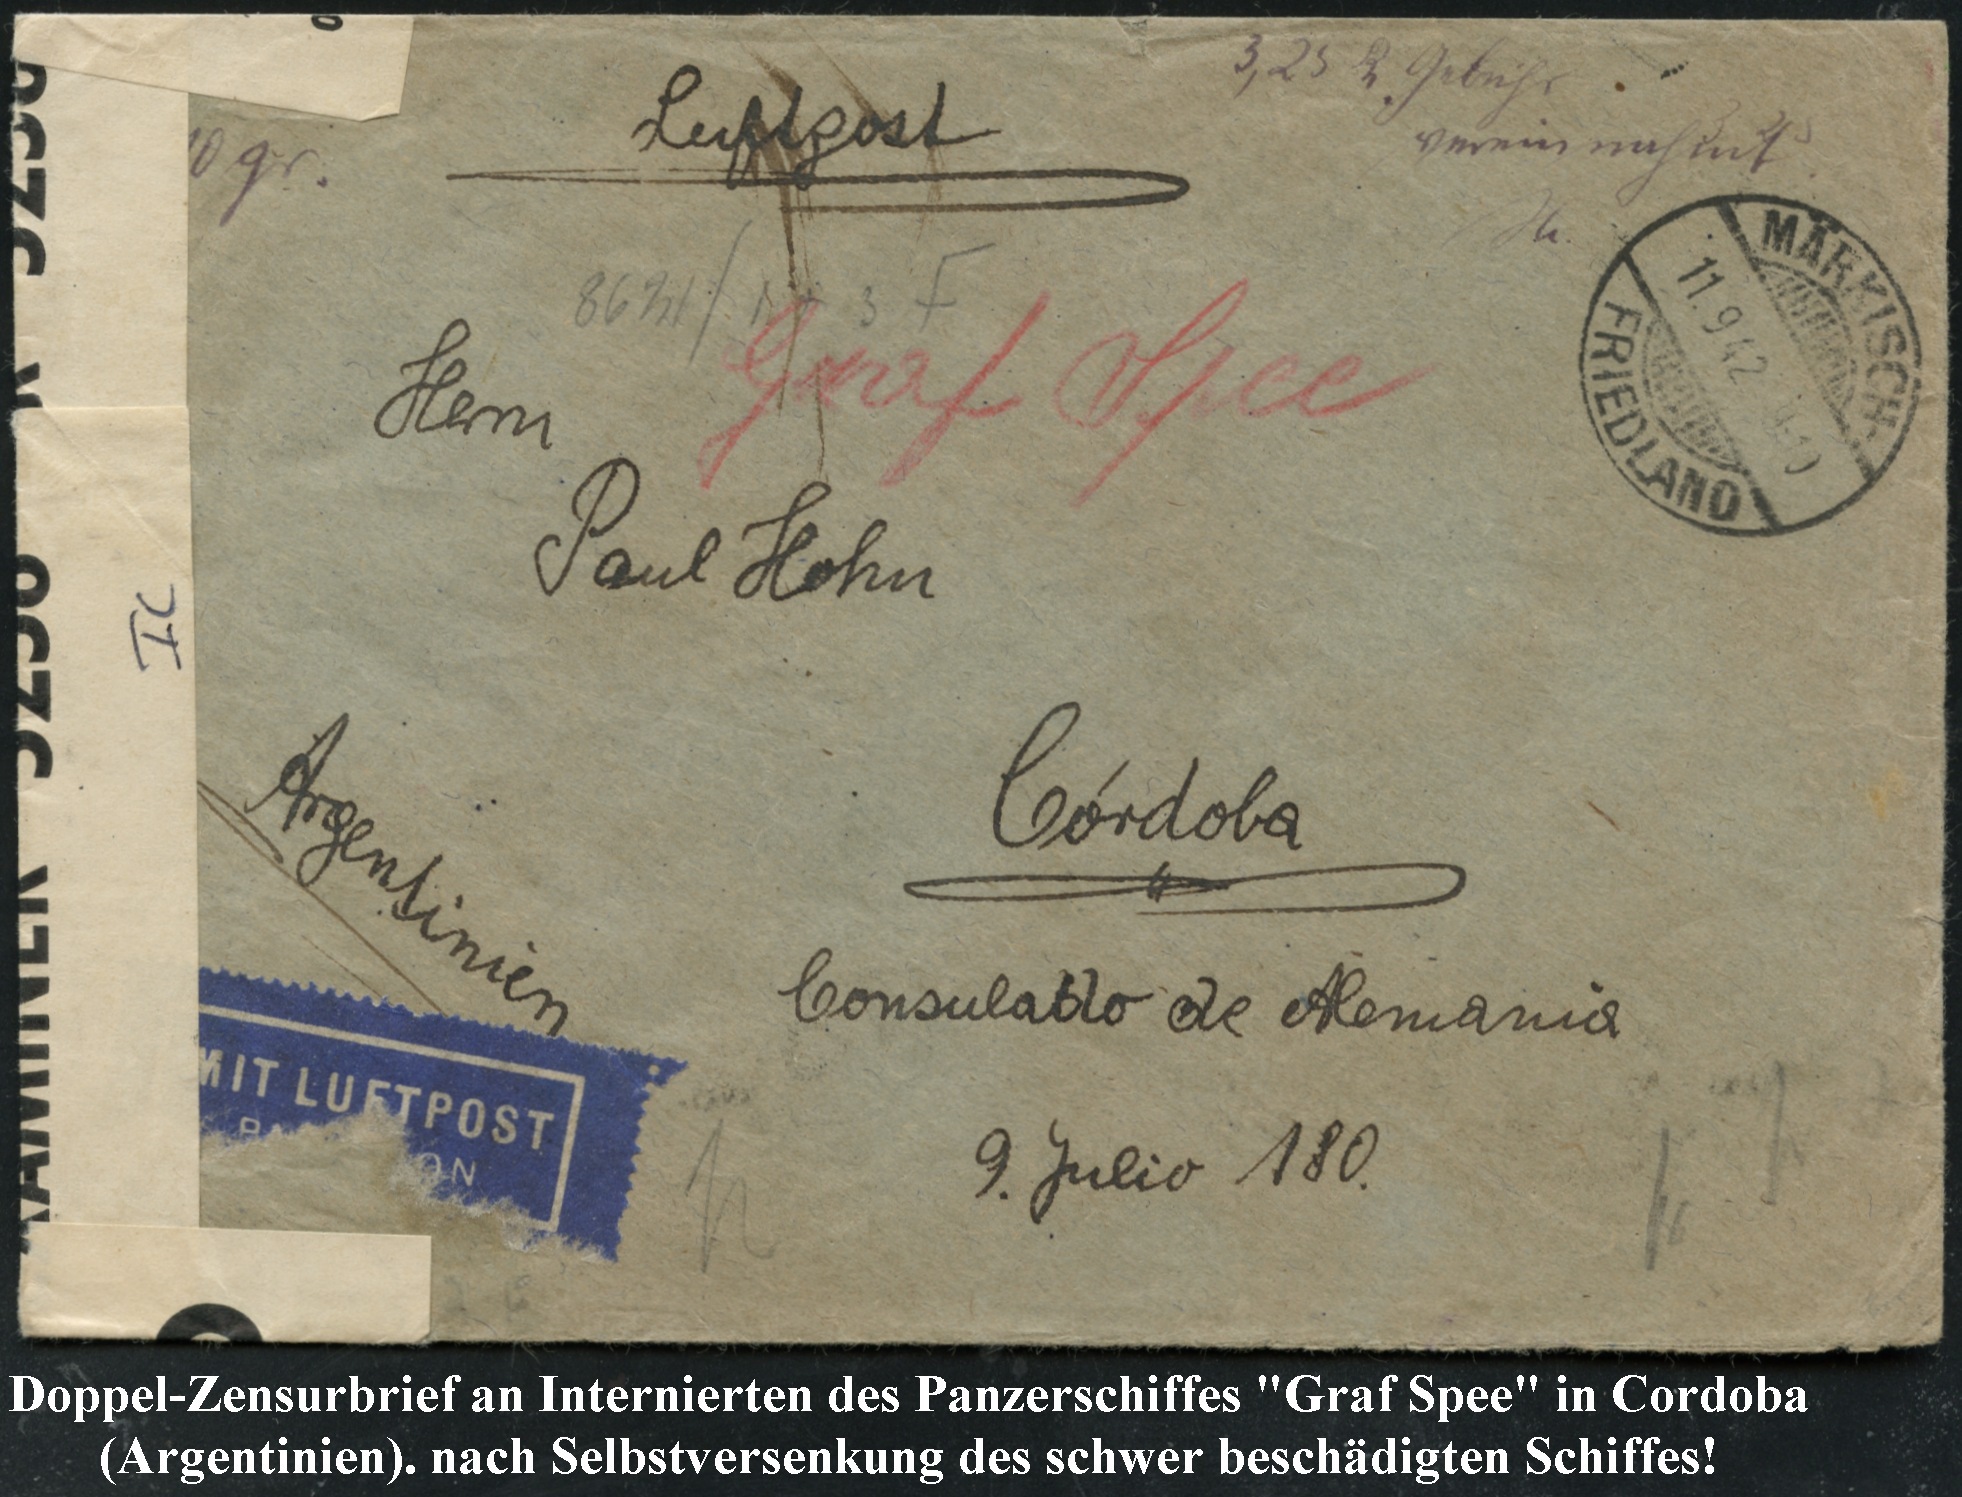 Luftpost
3,25 Gebühr
vereinnahmt
10 gr.
MÄRKISCH-
FRIEDLAND
11.9.42
Graf Spee
Herrn
Paul Hohn
5258
5258
IC
EXAMINER
Argentinien
Córdoba
Consulado de Alemania
9. Julio 180.
MIT LUFTPOST
Doppel-Zensurbrief an Internierten des Panzerschiffes "Graf Spee" in Cordoba
(Argentinien). nach Selbstversenkung des schwer beschädigten Schiffes!